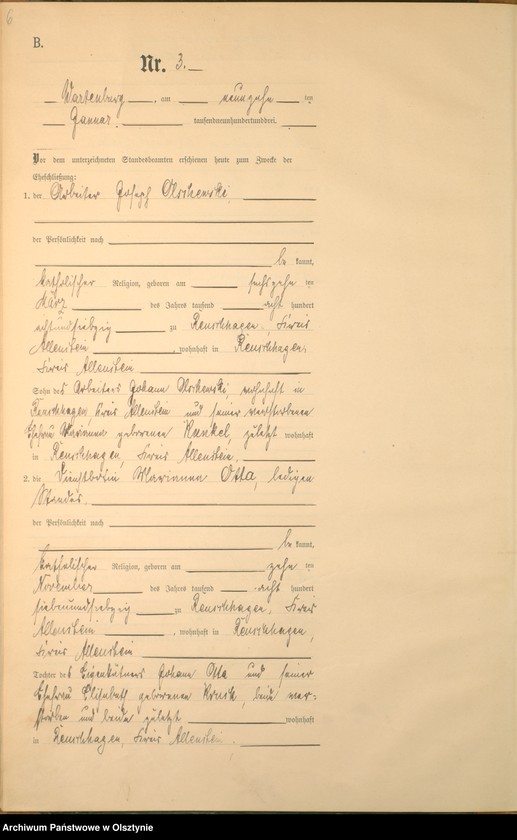 6
B.
Nr. 3.
Wartenburg, am neunzehn ten
Januar tausendneunhundertunddrei.
Vor dem unterzeichneten Standesbeamten erschienen heute zum Zwecke der
Eheschließung:
1. der Arbeiter Joseph
der Persönlichkeit nach
be kannt,
katholischer Religion, geboren am sechszehn ten
März des Jahrs tausend acht hundert
achtundsiebzig zu Reuschhagen, Kreis
Allenstein, wohnhaft in Reuschhagen,
Kreis Allenstein
Sohn des Arbeiters Johann wohnhaft in
Reuschhagen, Kreis Allenstein und seiner verstorbenen
Ehefrau Marianna geborenen Kunkel, zuletzt wohnhaft
in Reuschhagen, Kreis Allenstein.
2. die Dienstbotin Marianna Otta, ledigen
Standes.
der Persönlichkeit nach
be kannt,
katholischer Religion, geboren am zehn ten
November des Jahrs tausend acht hundert
siebenundsiebzig zu Reuschhagen, Kreis
Allenstein, wohnhaft in Reuschhagen,
Kreis Allenstein
Tochter des Eigenkätners Johann Otta und seiner
Ehefrau Elisabeth geborenen beide ver-
storben und beide zuletzt wohnhaft
in Reuschhagen, Kreis Allenstein.
Archiwum Państwowe w Olsztynie